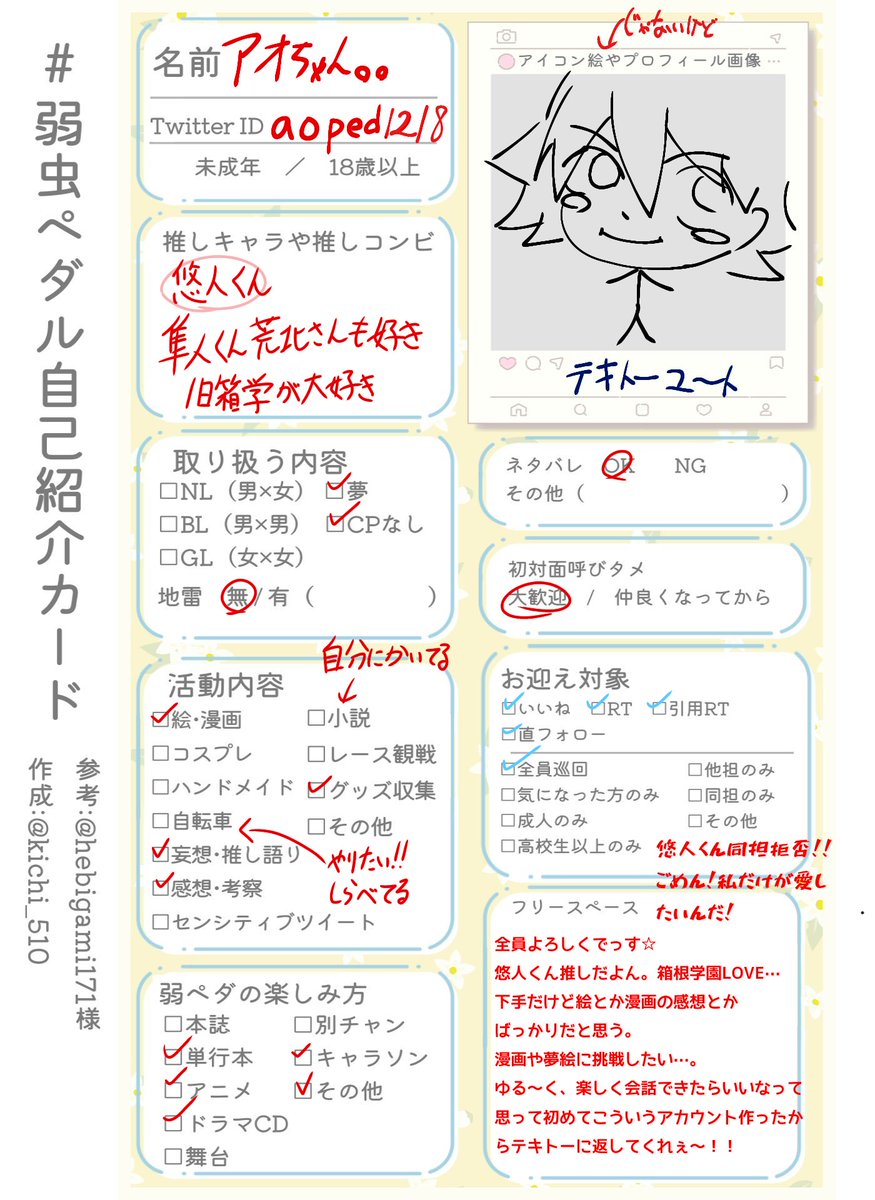 #弱虫ペダル自己紹介カード
参考:@hebigami171様
作成:@kichi_510
名前 アオちゃん。。
Twitter ID aoped1218
未成年 / 18歳以上
推しキャラや推しコンビ
悠人くん
隼人くん荒北さんも好き
旧箱学が大好き
取り扱う内容
□NL(男×女) □夢
□BL(男×男) □CPなし
□GL(女×女)
地雷 無/有( )
自分にかいてる
活動内容
□絵・漫画 □小説
□コスプレ □レース観戦
□ハンドメイド □グッズ収集
□自転車 □その他
□妄想・推し語り やりたい!!
□感想・考察 しらべてる
□センシティブツイート
弱ペダの楽しみ方
□本誌 □別チャン
□単行本 □キャラソン
□アニメ □その他
□ドラマCD
□舞台
じゃないけど
アイコン絵やプロフィール画像 …
テキトーユート
ネタバレ OK NG
その他( )
初対面呼びタメ
大歓迎 / 仲良くなってから
お迎え対象
□いいね □RT □引用RT
□直フォロー
□全員巡回 □他担のみ
□気になった方のみ □同担のみ
□成人のみ □その他
□高校生以上のみ
悠人くん同担拒否!!
ごめん!私だけが愛し
たいんだ!
フリースペース
全員よろしくでっす☆
悠人くん推しだよん。箱根学園LOVE…
下手だけど絵とか漫画の感想とか
ばっかりだと思う。
漫画や夢絵に挑戦したい…。
ゆる〜く、楽しく会話できたらいいなって
思って初めてこういうアカウント作ったか
らテキトーに返してくれぇ〜!!